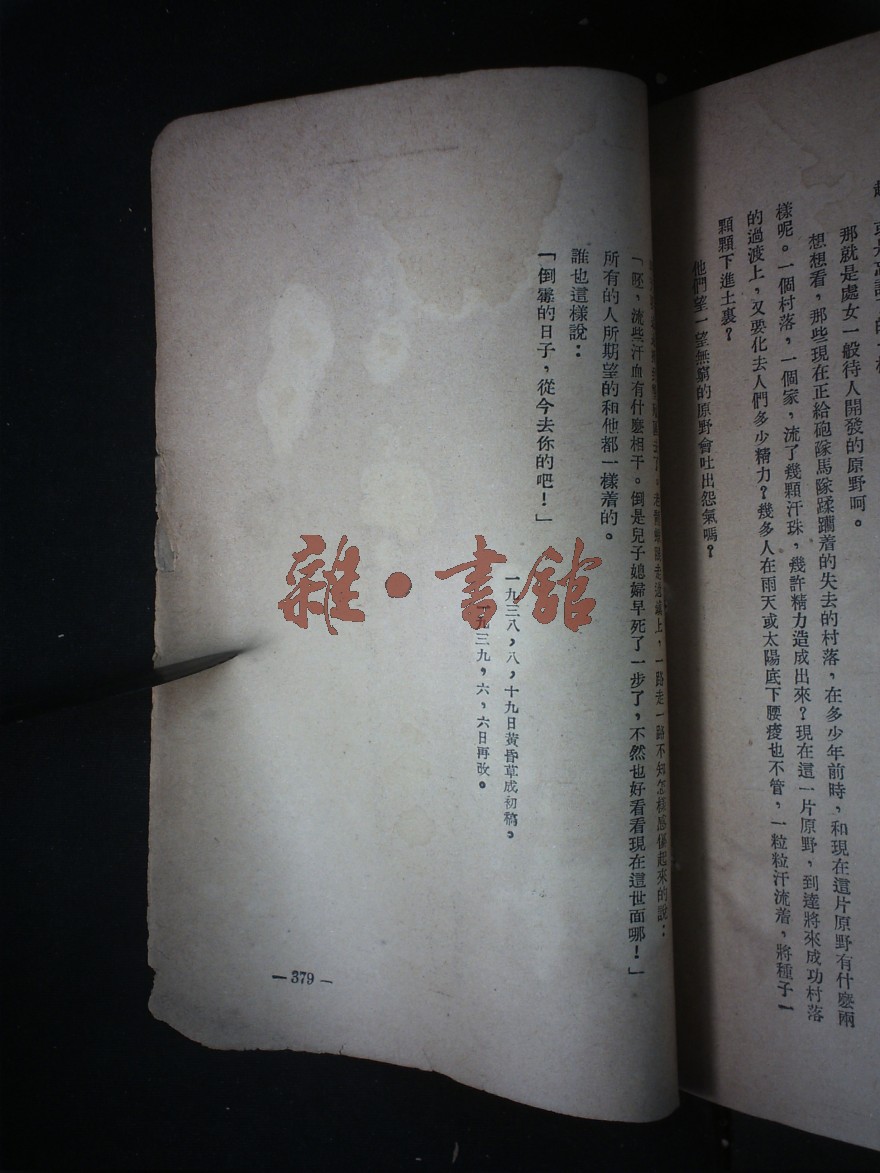 那就是處女一般待人開發的原野呵。
想想看，那些現在正給砲隊馬隊蹂躪着的失去的村落，在多少年前時，和現在這片原野有什麼兩
樣呢。一個村落，一個家，流了幾顆汗珠，幾許精力造成出來？現在這一片原野，到達將來成功村落
的過渡上，又要化去人們多少精力？幾多人在雨天或太陽底下腰痠也不管，一粒粒汗流着，將種子一
顆顆下進土裏？
他們望一望無窮的原野會吐出怨氣嗎？
走一路不知怎樣感傷起來的說：
「呸，流些汗血有什麼相干。倒是兒子媳婦早死了一步了，不然也好看看現在這世面哪！」
所有的人所期望的和他都一樣着的。
誰也這樣說：
「倒霉的日子，從今去你的吧！」
一九三八，八，十九日黃昏草成初稿。
一九三九，六，六日再改。
—379—
雜·書館